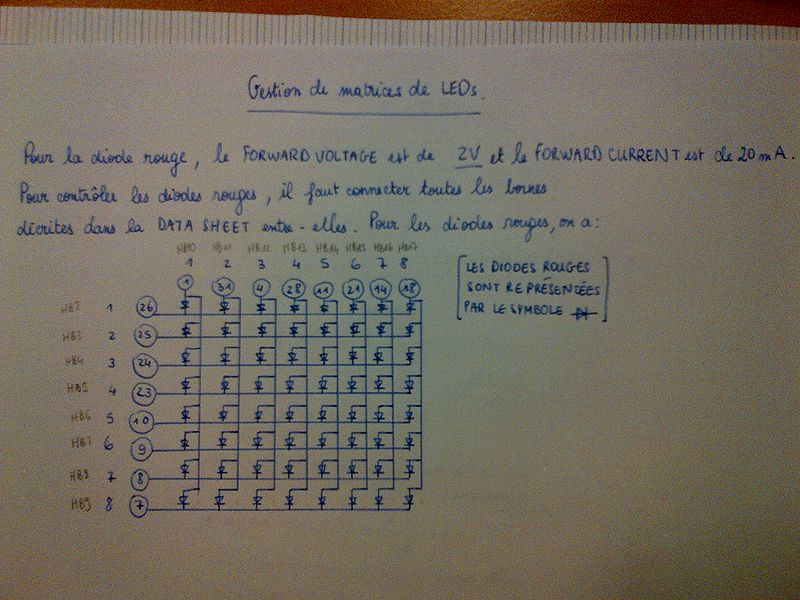 Gestion de matrices de LEDs.
Pour la diode rouge, le FORWARD VOLTAGE est de 2V et le FORWARD CURRENT est de 20 mA.
Pour contrôler les diodes rouges, il faut connecter toutes les bornes
décrites dans la DATA SHEET entre-elles. Pour les diodes rouges, on a:
HB10 HB11 HB12 HB13 HB14 HB15 HB16 HB17
1 2 3 4 5 6 7 8
1 31 4 28 11 21 14 18
[LES DIODES ROUGES
SONT REPRÉSENTÉES
PAR LE SYMBOLE]
HB2 1 26
HB3 2 25
HB4 3 24
HB5 4 23
HB6 5 10
HB7 6 9
HB8 7 8
HB9 8 7